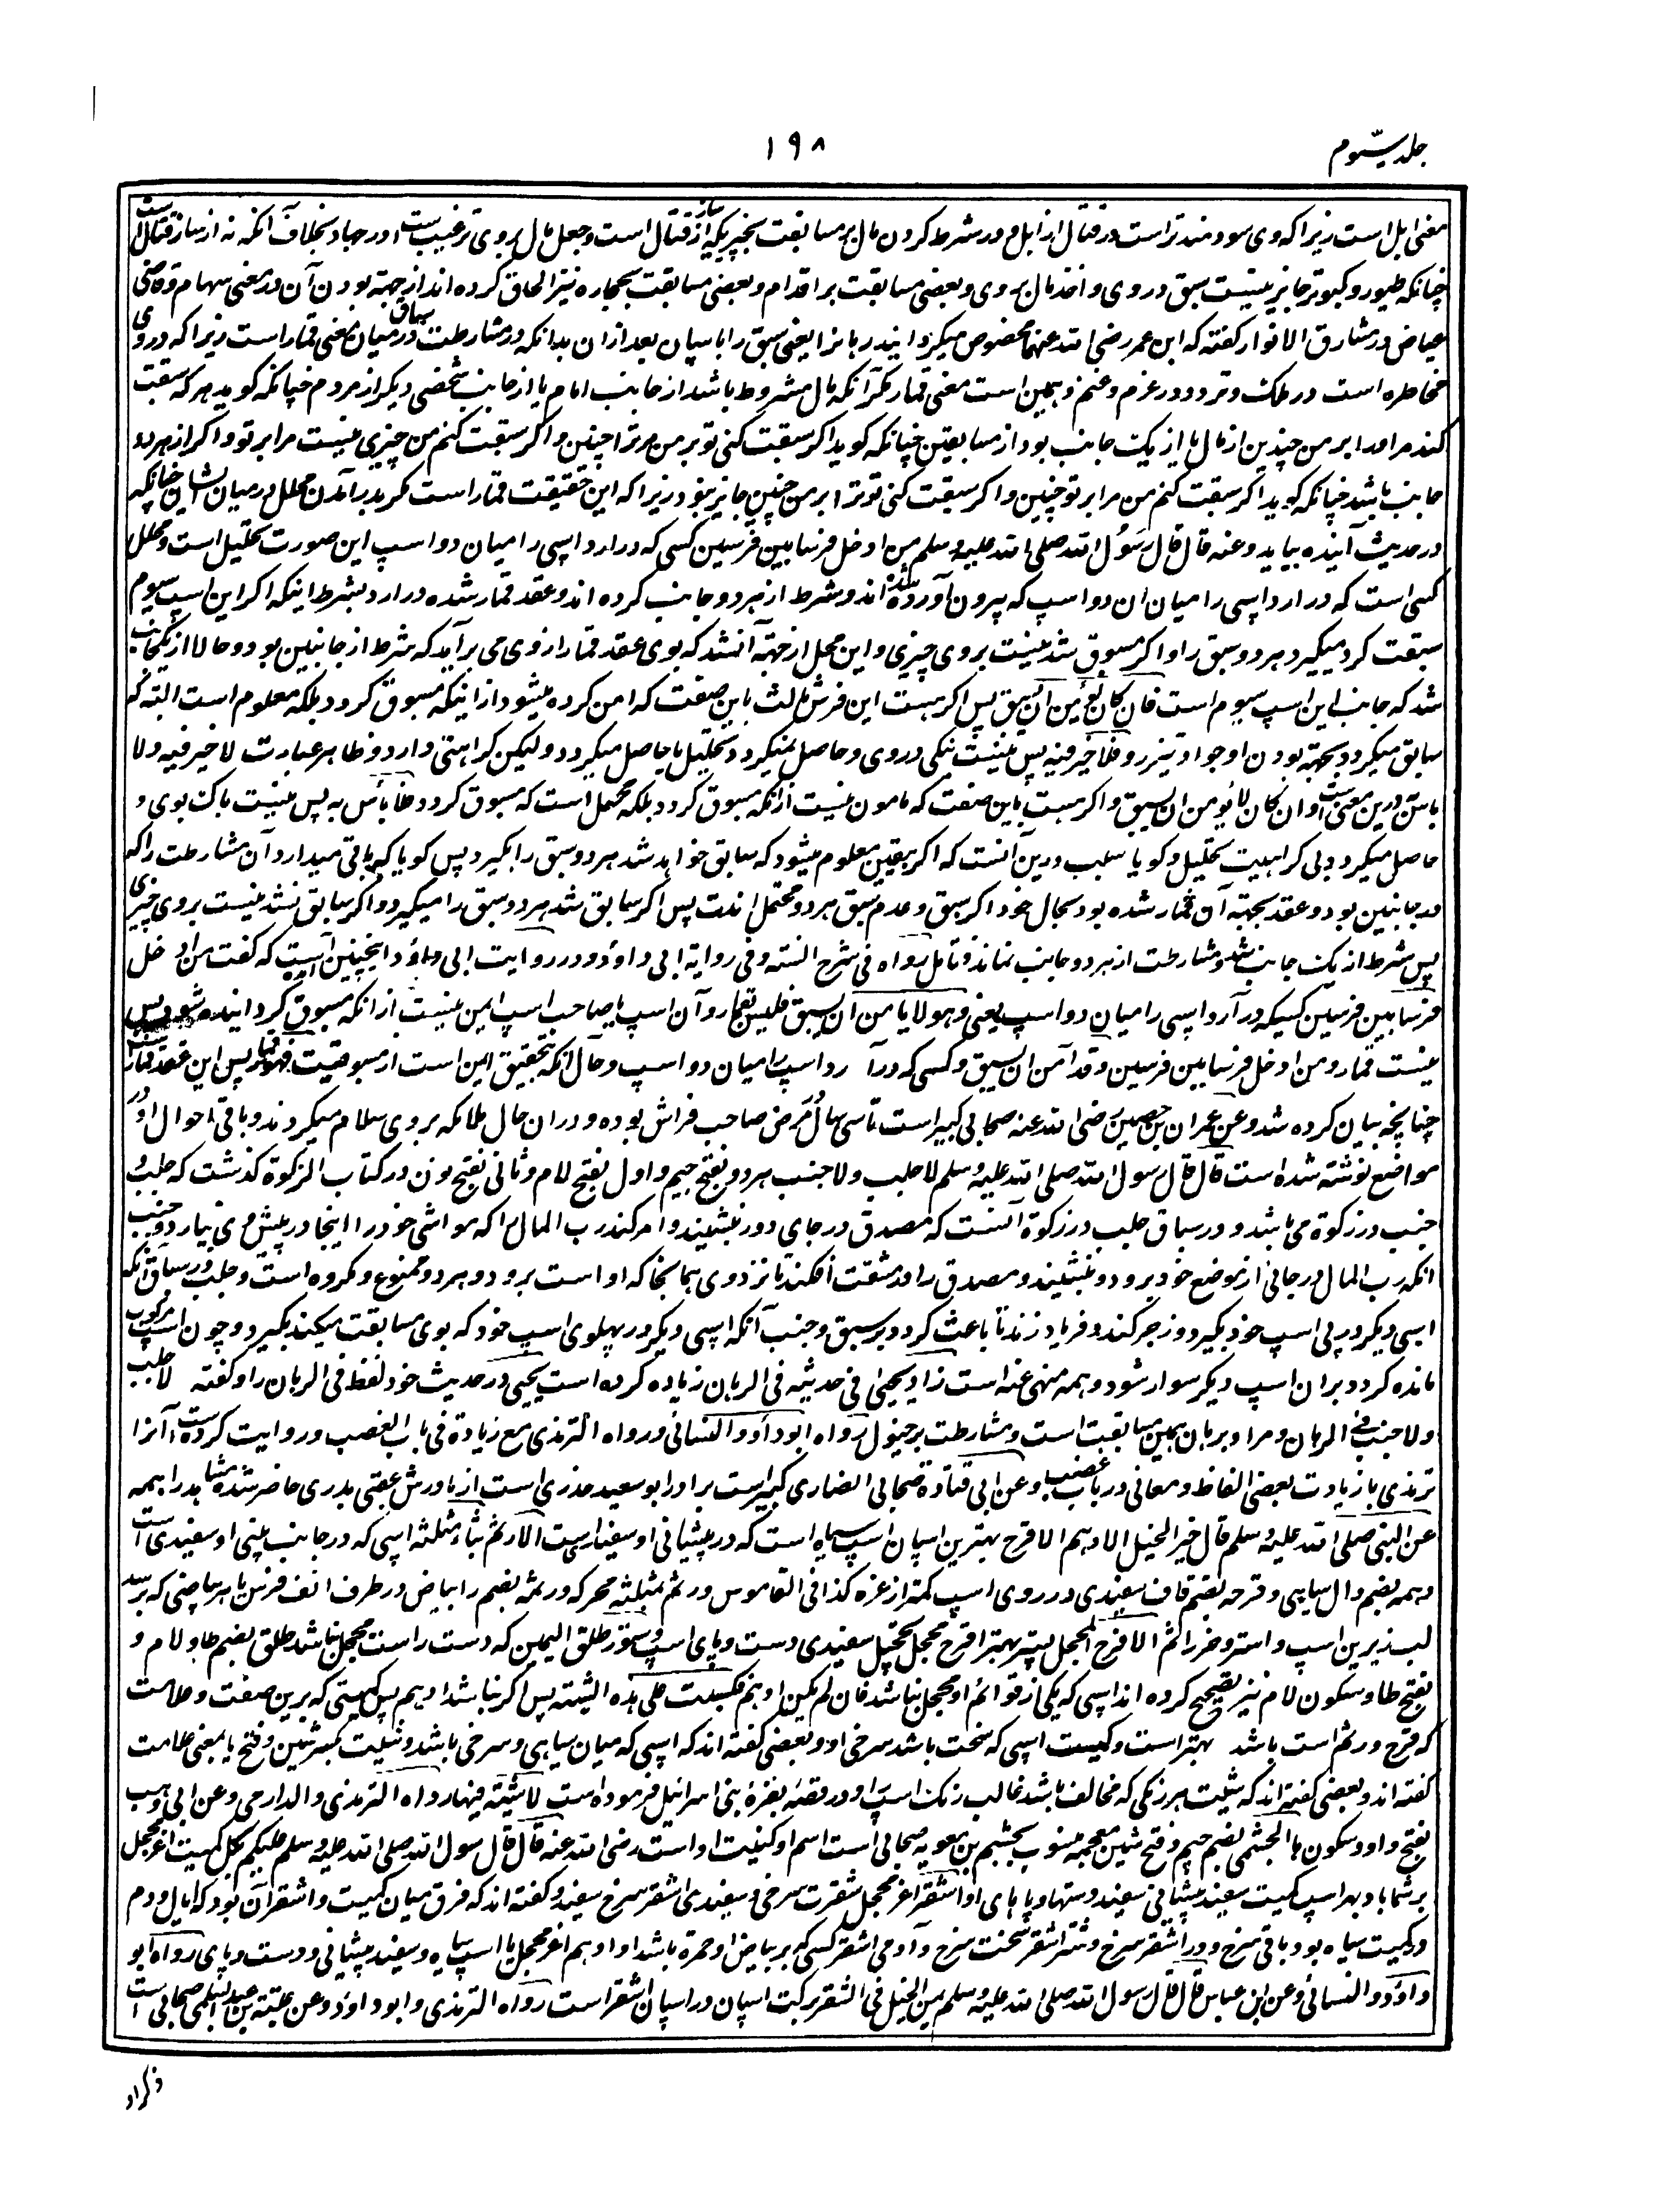 جلد سیّوم
۱۹۸
معنی ابل است زیرا که وی سودمند تراست در قتال از ابل و در شرط کردن مال بر مسابقت بچیزیکه از ساز قتال است وجعل مال بروی ترغیب است در جهاد بخلاف آنکه نه از ساز قتال است
چنانکه طیور و کبوتر جایز نیست سبق در وی و اخذ مال بروی و بعضی مسابقت بر اقدام و بعضی مسابقت بحجاره نیز الحاق کرده اند از جهة بودن آن در معنی سهام و قاضی
عیاض در مشارق الانوار گفته که ابن عمر رضی الله عنهما مخصوص میگرداند رهان را یعنی سبق را باسپان بعد ازان بدانکه در مشارطت در میان معنی قمار است زیرا که در وی
مخاطره است در ملک و تردد در غرم و غنم و همین است معنی قمار مگر آنکه مال مشروط باشد از جانب امام یا از جانب شخصی دیگر از مردم چنانکه گوید هر که سبقت
کند مر او را بر من چندین از مال یا از یک جانب بود از مسابقین چنانکه گوید اگر سبقت کنی تو بر من مر ترا چنین و اگر سبقت کنم من چیزی نیست مرا بر تو و اگر از هر دو
جانب باشد چنانکه گوید اگر سبقت کنم من مرا بر تو چنین و اگر سبقت کنی تو ترا بر من چنین جایز نبود زیرا که این حقیقت قمار است مگر بدر آمدن محلل در میان ایشان چنانکه
در حدیث آینده بیاید وعنه قال قال رسول الله صلی الله علیه وسلم من ادخل فرسا بین فرسین کسی که در آرد اسپی را میان دو اسپ این صورت تحلیل است و محلل
کسی است که در آرد اسپی را میان آن دو اسپ که بیرون آورده شده اند و شرط از هر دو جانب کرده اند و عقد قمار شده در آرد بشرط اینکه اگر این اسپ سیوم
سبقت کرد میگیرد هر دو سبق را و اگر مسبوق شد نیست بروی چیزی و این محلل از جهة آن شد که بوی عقد قمار از وی می برآید که شرط از جانبین بود و حالا از یکجانب
شد که جانب این اسپ سیوم است فان کان یؤمن ان یسبق پس اگر هست این فرش ثالث باین صفت که امن کرده میشود از اینکه مسبوق گردد بلکه معلوم است البته که
سابق میگردد بجهة بودن او جواد تیز رو فلا خیر فیه پس نیست نیکی در وی و حاصل نمیگردد تحلیل یا حاصل میگردد ولیکن کراهتی دارد و ظاهر عبارت لا خیر فیه ولا
باس در ین معنی است و ان کان لا یؤمن ان یسبق و اگر هست باین صفت که مامون نیست از آنکه مسبوق گردد بلکه محتمل است که مسبوق گردد فلا بأس به پس نیست باک بوی و
حاصل میگردد بی کراهیت تحلیل و گویا سبب درین آنست که اگر بیقین معلوم میشود که سابق خواهد شد هر دو سبق را بگیرد پس گویا که باقی میدارد آن مشارطت را که
در جانبین بود و عقد بجهة آن قمار شده بود بحال خود اگر سبق و عدم سبق هر دو محتمل اند پس اگر سابق شد هر دو سبق را میگیرد و اگر سابق نشد نیست بروی چیزی
پس شرط از یک جانب شد و مشارطت از هر دو جانب نماند فتامل رواه فی شرح السنه وفی روایة ابی داؤد و در روایت ابی داؤد اینچنین آمده است که گفت من ادخل
فرسا بین فرسین کسیکه در آرد اسپی را میان دو اسپ یعنی وهو لا یامن ان یسبق فلیس بقمار و آن اسپ یا صاحب اسپ ایمن نیست از آنکه مسبوق گردانیده شود پس
نیست قمار و من ادخل فرسا بین فرسین وقد آمن ان یسبق و کسی که در آرد اسپ را میان دو اسپ و حال آنکه بتحقیق ایمن است از مسبوقیت فهو قمار پس این عقد قمار است
چنانچه بیان کرده شد وعن عمران بن حصین رضی الله عنه صحابی کبیر است تا سی سال مرض صاحب فراش بوده و دران حال ملائکه بروی سلام میکردند و باقی احوال او در
مواضع نوشته شده است قال قال رسول الله صلی الله علیه وسلم لا جلب ولا جنب هر دو بفتح جیم و اول بفتح لام و ثانی بفتح نون در کتاب الزکوة گذشت که جلب و
جنب در زکوة می باشد و در سباق جلب در زکوة آنست که مصدق در جای دور بنشیند و امر کند رب المال را که مواشی خود را اینجا در پیش وی بیارد و جنب
آنکه رب المال در جائی از موضع خود برود و بنشیند و مصدق را در مشقت افکند تا نزد وی همانجا که او است برود و هر دو ممنوع و مکروه است و جلب در سباق آنکه
اسپی دیگر در پی اسپ خود بگیرد و زجر کند و فریاد زند تا باعث گردد بر سبق و جنب آنکه اسپی دیگر در پهلوی اسپ خود که بوی مسابقت میکند بگیرد و چون اسپ مرکوب
مانده گردد بران اسپ دیگر سوار شود و همه منهی عنه است زاد یحیی فی حدیثه فی الرهان زیاده کرده است یحیی در حدیث خود لفظ فی الرهان را و گفته لا جلب
ولا جنب فی الرهان و مراد برهان همین مسابقت است و مشارطت بر خیول رواه ابوداؤد والنسائی و رواه الترمذی مع زیادة فی باب الغصب و روایت کرده است آنرا
ترمذی با زیادت بعضی الفاظ و معانی در باب غصب وعن ابی قتادة صحابی انصاری کبیر است برادر ابو سعید خدری است از مادرش عقبی بدری حاضر شده مشاهد را همه
عن النبی صلی الله علیه وسلم قال خیر الخیل الادهم الاقرح بهترین اسپان اسپ سیاه است که در پیشانی او سفیدی است الارثم بثاء مثلثه اسپی که در جانب بینی او سفیدی است
دهمه بضم دال سیاهی و قرحه بضم قاف سفیدی در روی اسپ کمتر از غره کذا فی القاموس و رثم بمثلثه محرکه و رثمه بضم را بیاض در طرف انف فرس یا هر بیاضی که برسد
لب زیرین اسپ و استر و خر را ثم الاقرح المحجل پستر بهتر اقرح محجل تحجیل سفیدی دست و پای اسپ و ستور طلق الیمین که دست راست محجل نباشد طلق بضم طا و لام و
بفتح طا و سکون لام نیز تصحیح کرده اند اسپی که یکی از قوائم او محجل نباشد فان لم یکن ادهم فکمیت علی هذه الشیة پس اگر نباشد ادهم پس کمیتی که برین صفت و علامت
که قرح و رثم است باشد بهتر است و کمیت اسپی که سخت باشد سرخی او و بعضی گفته اند که اسپی که میان سیاهی و سرخی باشد و شیت بکسر شین و فتح یا بمعنی علامت
گفته اند و بعضی گفته اند که شیت هر رنگی که مخالف باشد غالب رنگ اسپ را و در قصه بقرۀ بنی اسرائیل فرموده است لا شیة فیها رواه الترمذی والدارمی وعن ابی وهب
بفتح واو و سکون ها الجشمی بضم جیم و فتح شین معجمه منسوب بجشم بن معویه صحابی است اسم او کنیت او است رضی الله عنه قال قال رسول الله صلی الله علیه وسلم علیکم بکل کمیت اغر محجل
بر شما باد بهر اسپ کمیت سفید پیشانی سفید دستها و پاهای او او اشقر اغر محجل شقرت سرخی و سفیدی اشقر سرخ سفید و گفته اند که فرق میان کمیت و اشقر آن بود که یال و دم
در کمیت سیاه بود باقی سرخ و در اشقر سرخ و شتر اشقر سخت سرخ و آدمی اشقر کسی که بر بیاض او حمرة باشد او ادهم اغر محجل یا اسپ سیاه و سفید پیشانی و دست و پای رواه ابو
داؤد والنسائی وعن ابن عباس قال قال رسول الله صلی الله علیه وسلم یمن الخیل فی الشقر برکت اسپان در اسپان اشقر است رواه الترمذی و ابوداؤد وعن عتبة بن عبد السلمی صحابی است